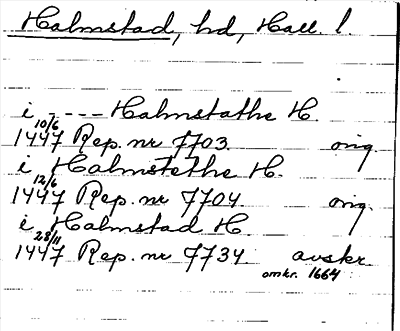 Halmstad, hd, Hall. l.
i ---- Halmstathe H.
10/6
1447 Rep. nr 7703. orig.
i Halmstethe H.
12/6
1447 Rep. nr 7704. orig.
i Halmstad H
28/11
1447 Rep. nr 7734. avskr.
omkr. 1664